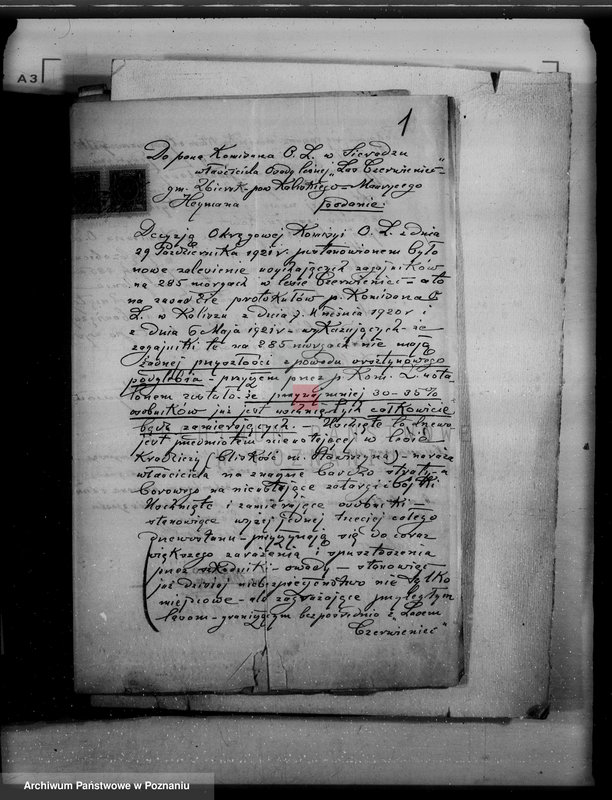 A3
1
Do pana Komisarza O. L. w Sieradzu
właściciela dóbr leśnej "Las Czerwieniec"
gm. Zbiersk pow. Kaliskiego Maurycego
Heymana Podanie.
Decyzją Okręgowej Komisyi O. L. z dnia
29 Października 1921 r. postanowionem było
nowe zalesienie usychających zagajników
na 285 morgach w lesie Czerwieniec - a to
na zasadzie protokułów p. Komisarza O.
L. w Kaliszu z dnia 7. Września 1920 r i
z dnia 6 Maja 1921 r - wykazujących - że
zagajniki te na 285 morgach nie mają
żadnej przyszłości z powodu
podglebia - przyczem przez p. Kom. L.
zostało: że przynajmniej 30-35%
osobników już jest uschniętych całkowicie
bądź zamierających. - Uschnięte to drzewo
jest przedmiotem nieustającej w lesie
Kradzieży (bliskość m. Stawiszyna) - naraża
właściciela na znaczne bardzo straty - a
borowego na nieustające zatargi i bójki
Uschnięte i zamierające osobniki -
stanowiące wyżej jednej trzeciej całego
drzewostanu - przyczyniają się do coraz
większego zarażenia i spustoszenia
przez szkodniki - owady - stanowiąc
już dzisiaj niebezpieczeństwo nie tylko
miejscowe - ale zagrażające przyległym
lasom - graniczącym bezpośrednio z "Lasem
Czerwieniec"
Archiwum Państwowe w Poznaniu